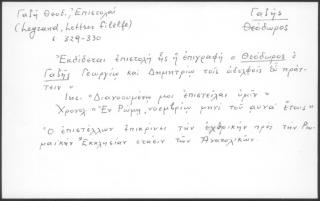 Γαζή Θεοδ., Ἐπιστολαί
Γαζῆς
Θεόδωρος
(Legrand, Lettres Filelfe)
σ 329-330
Ἐκδίδεται ἐπιστολή ἧς ἡ ἐπιγραφή ὁ Θεόδωρος ὁ
Γαζῆς Γεωργίῳ καί Δημητρίῳ τοῖς ἀδελφοῖς εὖ πράτ-
τειν »
"Διανοουμένῳ μοι ἐπιστεῖλαι ὑμῖν"
Χρονολ "Ἐν Ρώμῃ, νοεμβρίῳ μηνί τοῦ αυνα' ἔτους"
Ὁ ἐπιστέλλων ἐπικρίνει τήν ἐχθρικήν πρός τήν Ρω-
μαϊκήν Ἐκκλησίαν στάσιν τῶν Ἀνατολικῶν.